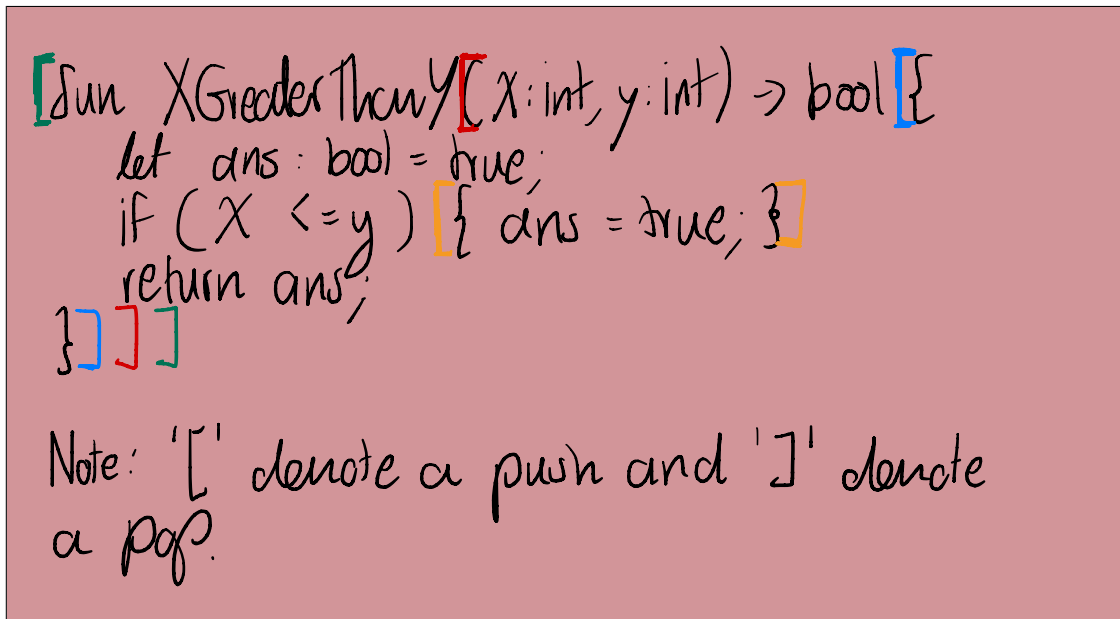 [fun XGreaterThanY[(x:int, y:int) -> bool[{
let ans : bool = true;
if (x <=y) [{ ans = true; }]
return ans;
}]]]
Note: '[' denote a push and ']' denote
a pop.